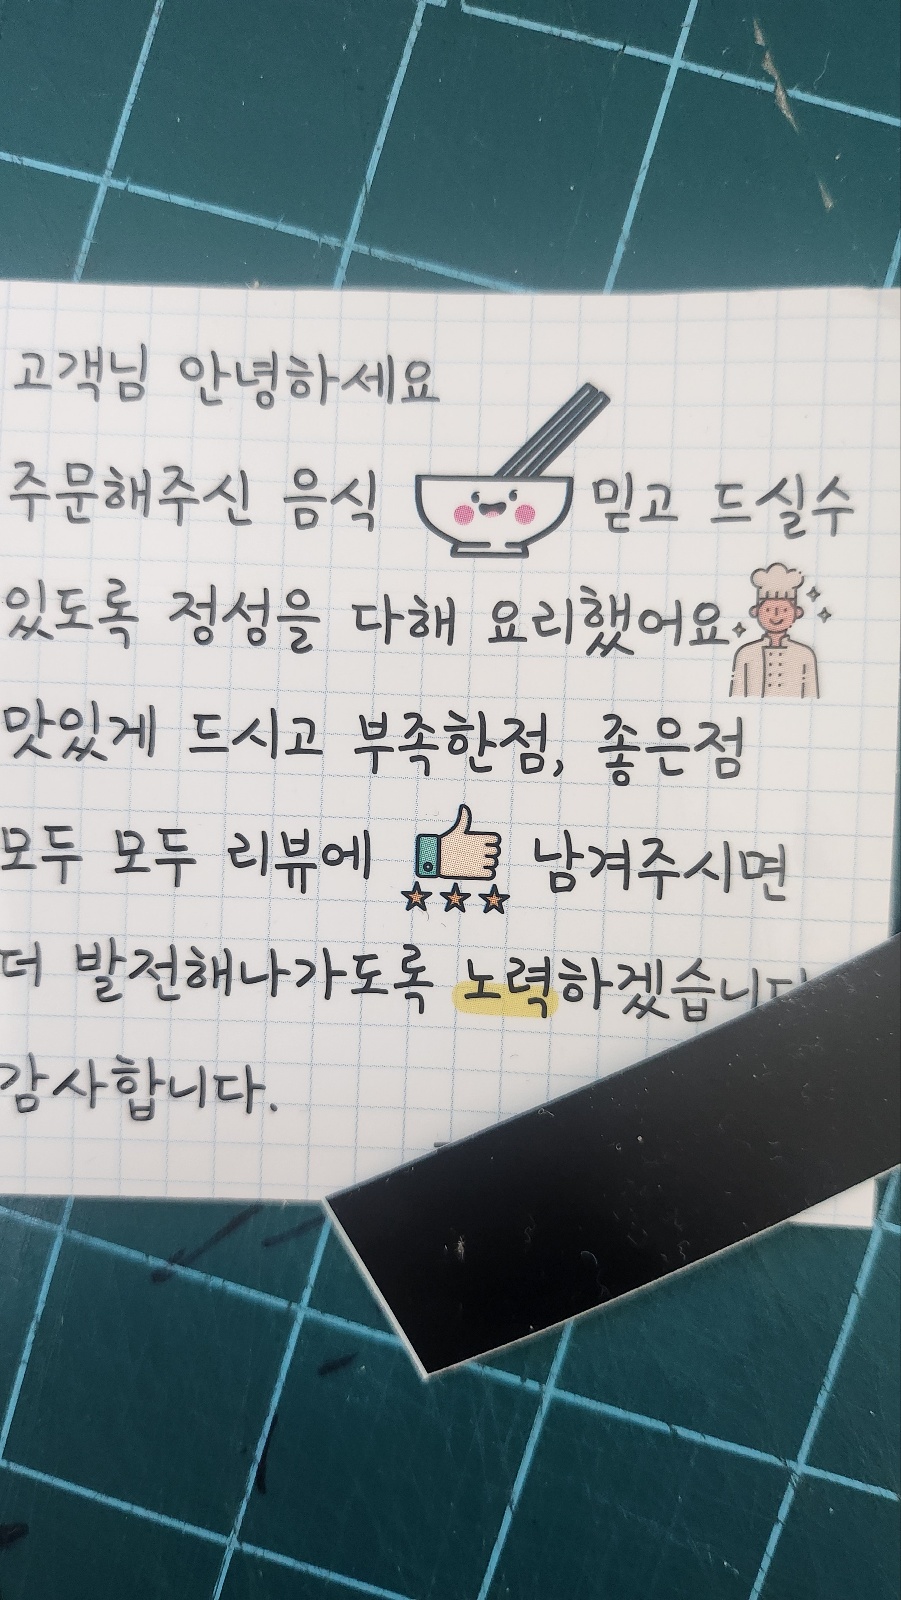 고객님 안녕하세요
주문해주신 음식 믿고 드실수
있도록 정성을 다해 요리했어요
맛있게 드시고 부족한점, 좋은점
모두 모두 리뷰에 남겨주시면
더 발전해나가도록 노력하겠습니다
감사합니다.